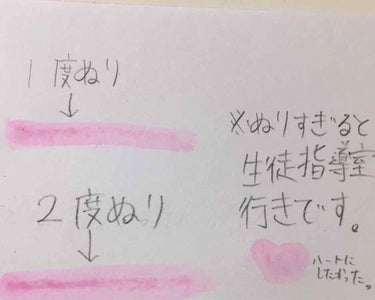 1度ぬり
↓
2度ぬり
↓
※ぬりすぎると
生徒指導室
行きです。
ハートに
したかった。